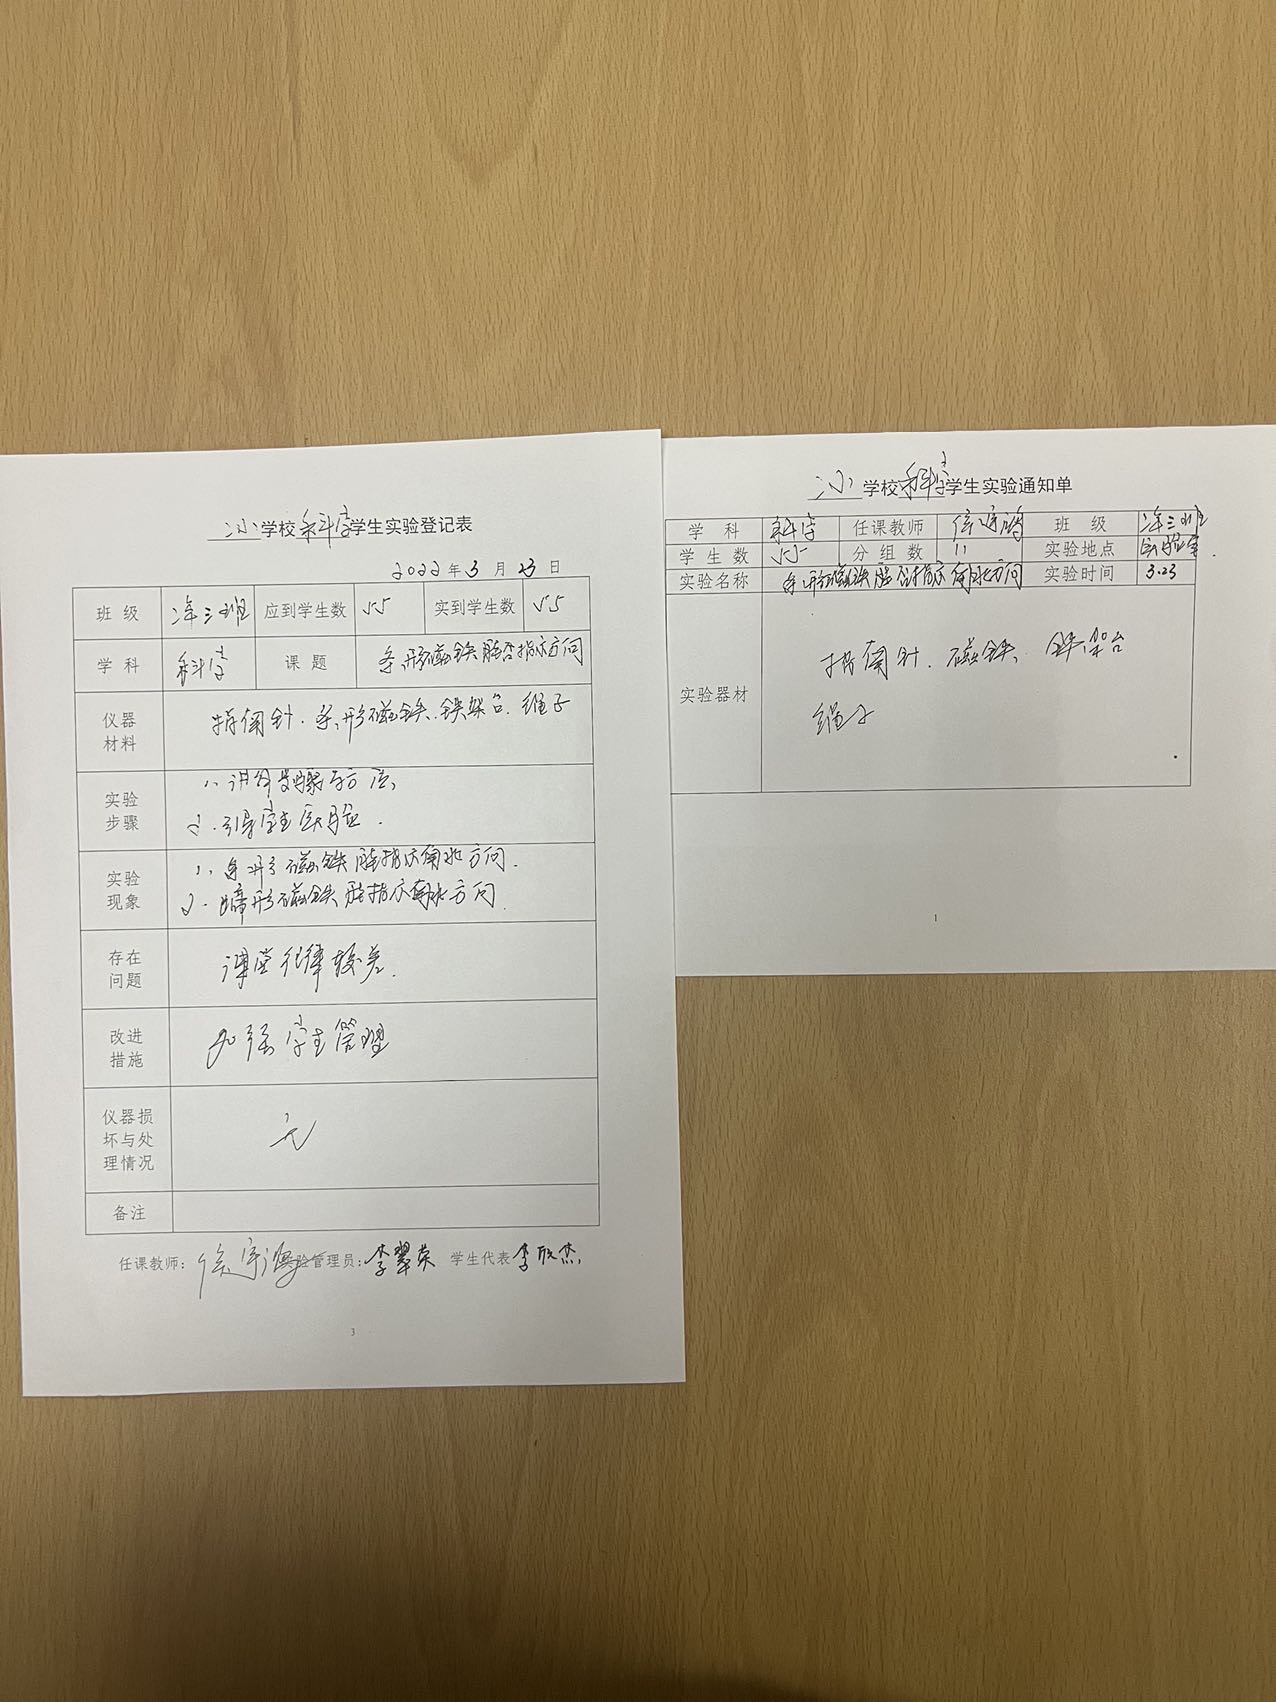 小学校科学学生实验登记表
2022年3月23日
班级 二年三班 应到学生数 55 实到学生数 55
学科 科学 课题 条形磁铁能否指示方向
仪器材料 指南针.条形磁铁.铁架台.绳子
实验步骤 1、讲解步骤与方法,
2.引导学生实验.
实验现象 1、条形磁铁能指示南北方向.
2.蹄形磁铁能指示南北方向.
存在问题 课堂纪律较差.
改进措施 加强学生管理
仪器损坏与处理情况 无
备注
任课教师: 实验管理员:李翠荣 学生代表 李欣杰
3
小学校科学学生实验通知单
学科 科学 任课教师 班级 二年三班
学生数 55 分组数 11 实验地点 实验室.
实验名称 条形磁铁能否指示南北方向 实验时间 3.23
实验器材 指南针.磁铁、铁架台
绳子
1